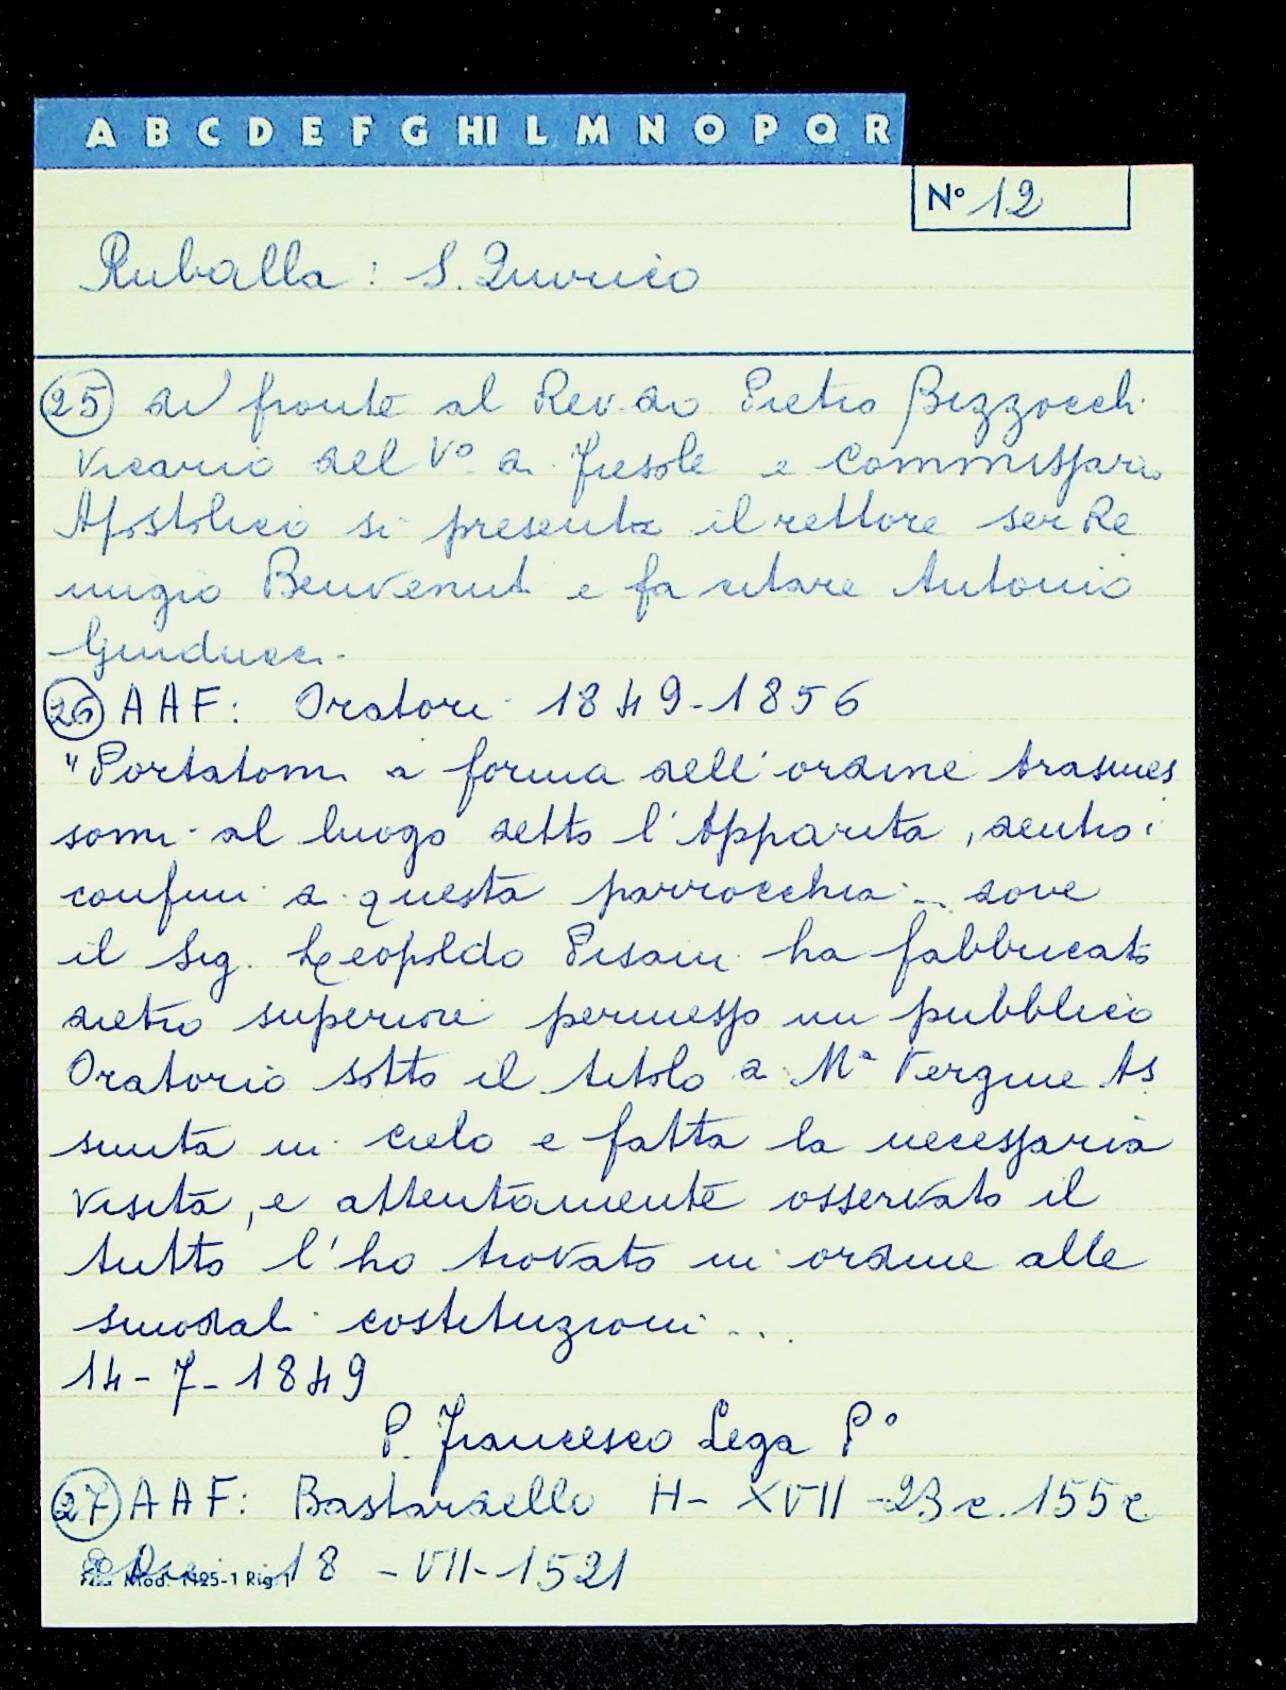 A B C D E F G HI L M N O P Q R
N° 12
Ruballa: S. Quirico
25 di fronte al Rev.do Pietro Bizzocchi
Vicario del V° di Fiesole e Commissario
Apostolico si presenta il rettore ser Re
migio Benvenuti e fa citare Antonio
Guiducci.
26 AAF: Oratori 1849-1856
"Portatomi a forma dell'ordine trasmes
somi al luogo detto l'Apparita, dentro i
confini di questa parrocchia... dove
il Sig. Leopoldo Pisani ha fabbricato
dietro superiore permesso un pubblico
Oratorio sotto il titolo di Mª Vergine As
sunta in cielo e fatta la necessaria
visita, e attentamente osservato il
tutto l'ho trovato in ordine alle
sinodali costituzioni...
14-7-1849
P. Francesco Lega P°
27 AAF: Bastardello H- XVII -23 c. 155 e
18 -VII-1521
Mod. 1425-1 Rig. 1